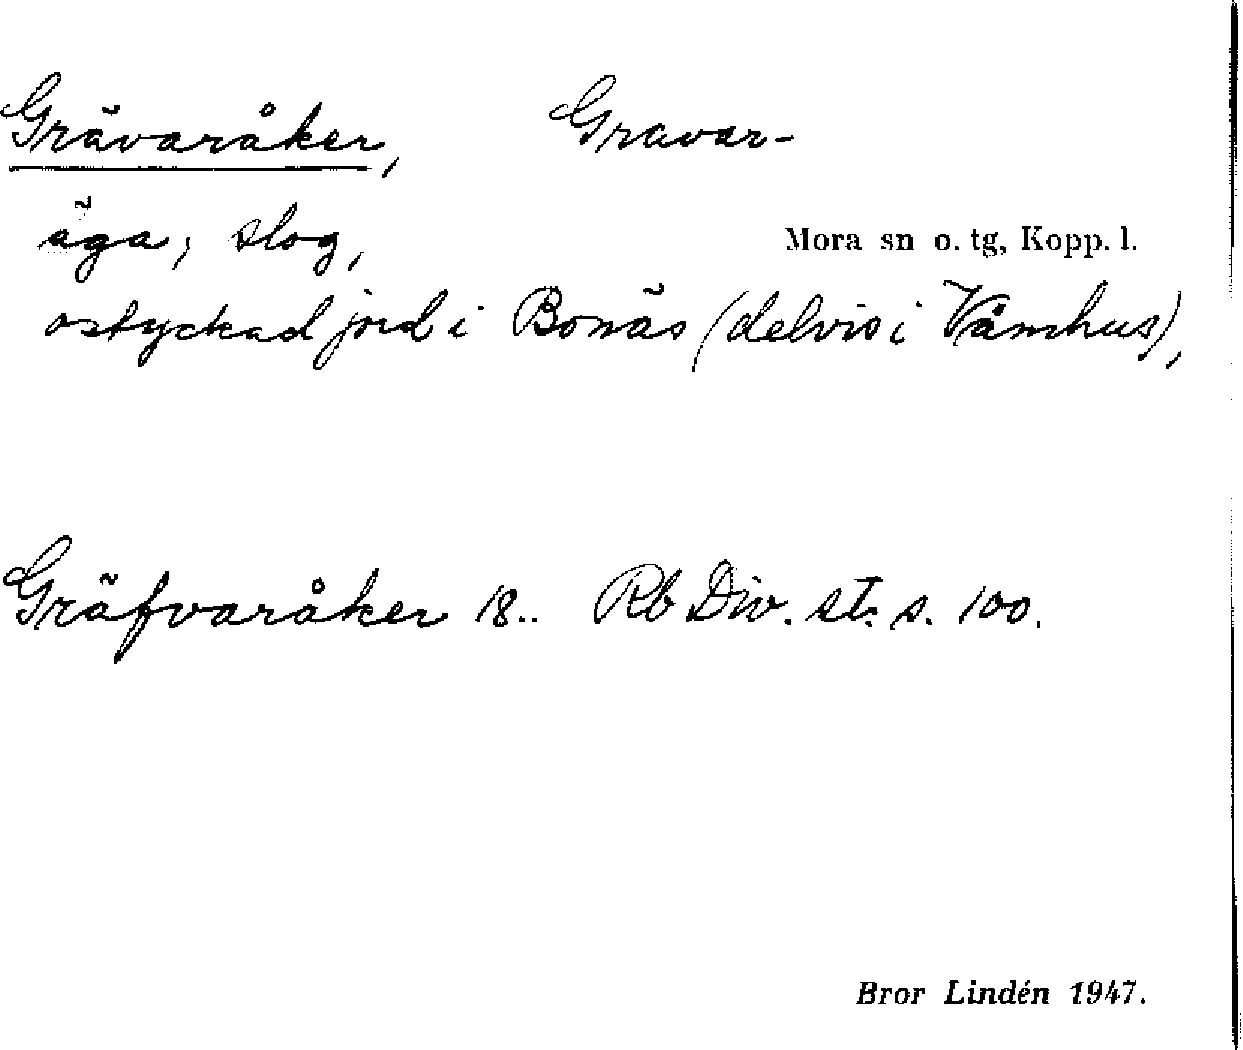 Grävaråker, Gravar-
äga, slog,
Mora sn o. tg, Kopp. l.
ostyckad jord i Bonäs (delvis i Våmhus),
Gräfvaråker 18.. Rb Div. st. s. 100.
Bror Lindén 1947.